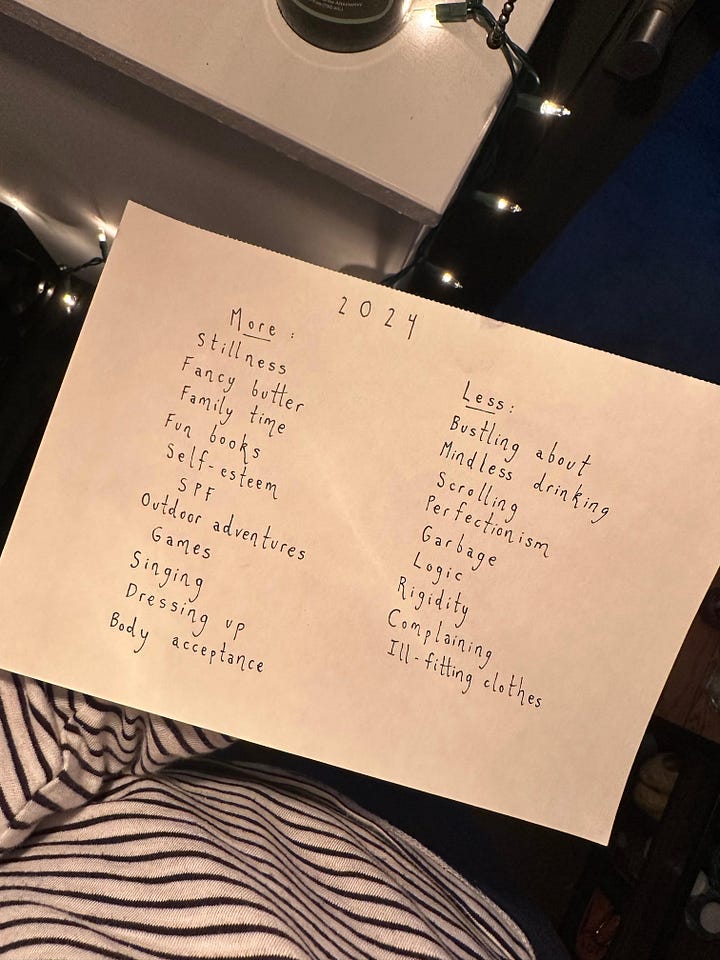 2024
More:
Stillness
Fancy butter
Family time
Fun books
Self-esteem
SPF
Outdoor adventures
Games
Singing
Dressing up
Body acceptance
Less:
Bustling about
Mindless drinking
Scrolling
Perfectionism
Garbage
Logic
Rigidity
Complaining
Ill-fitting clothes